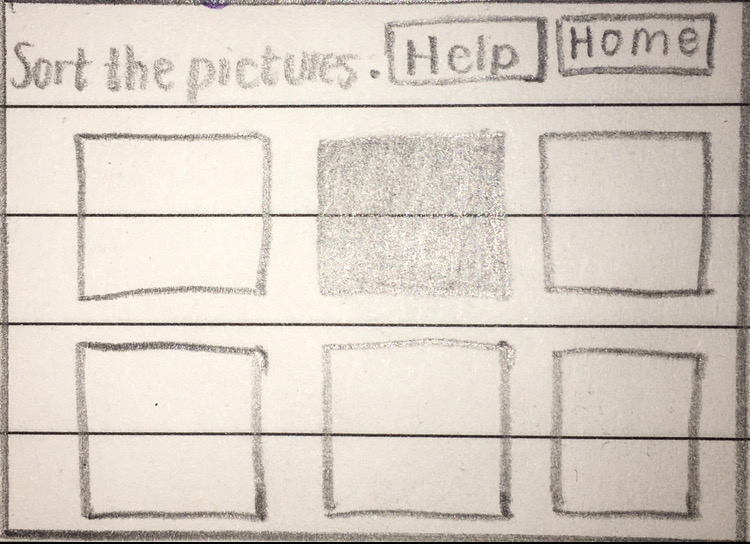 Sort the pictures. Help Home